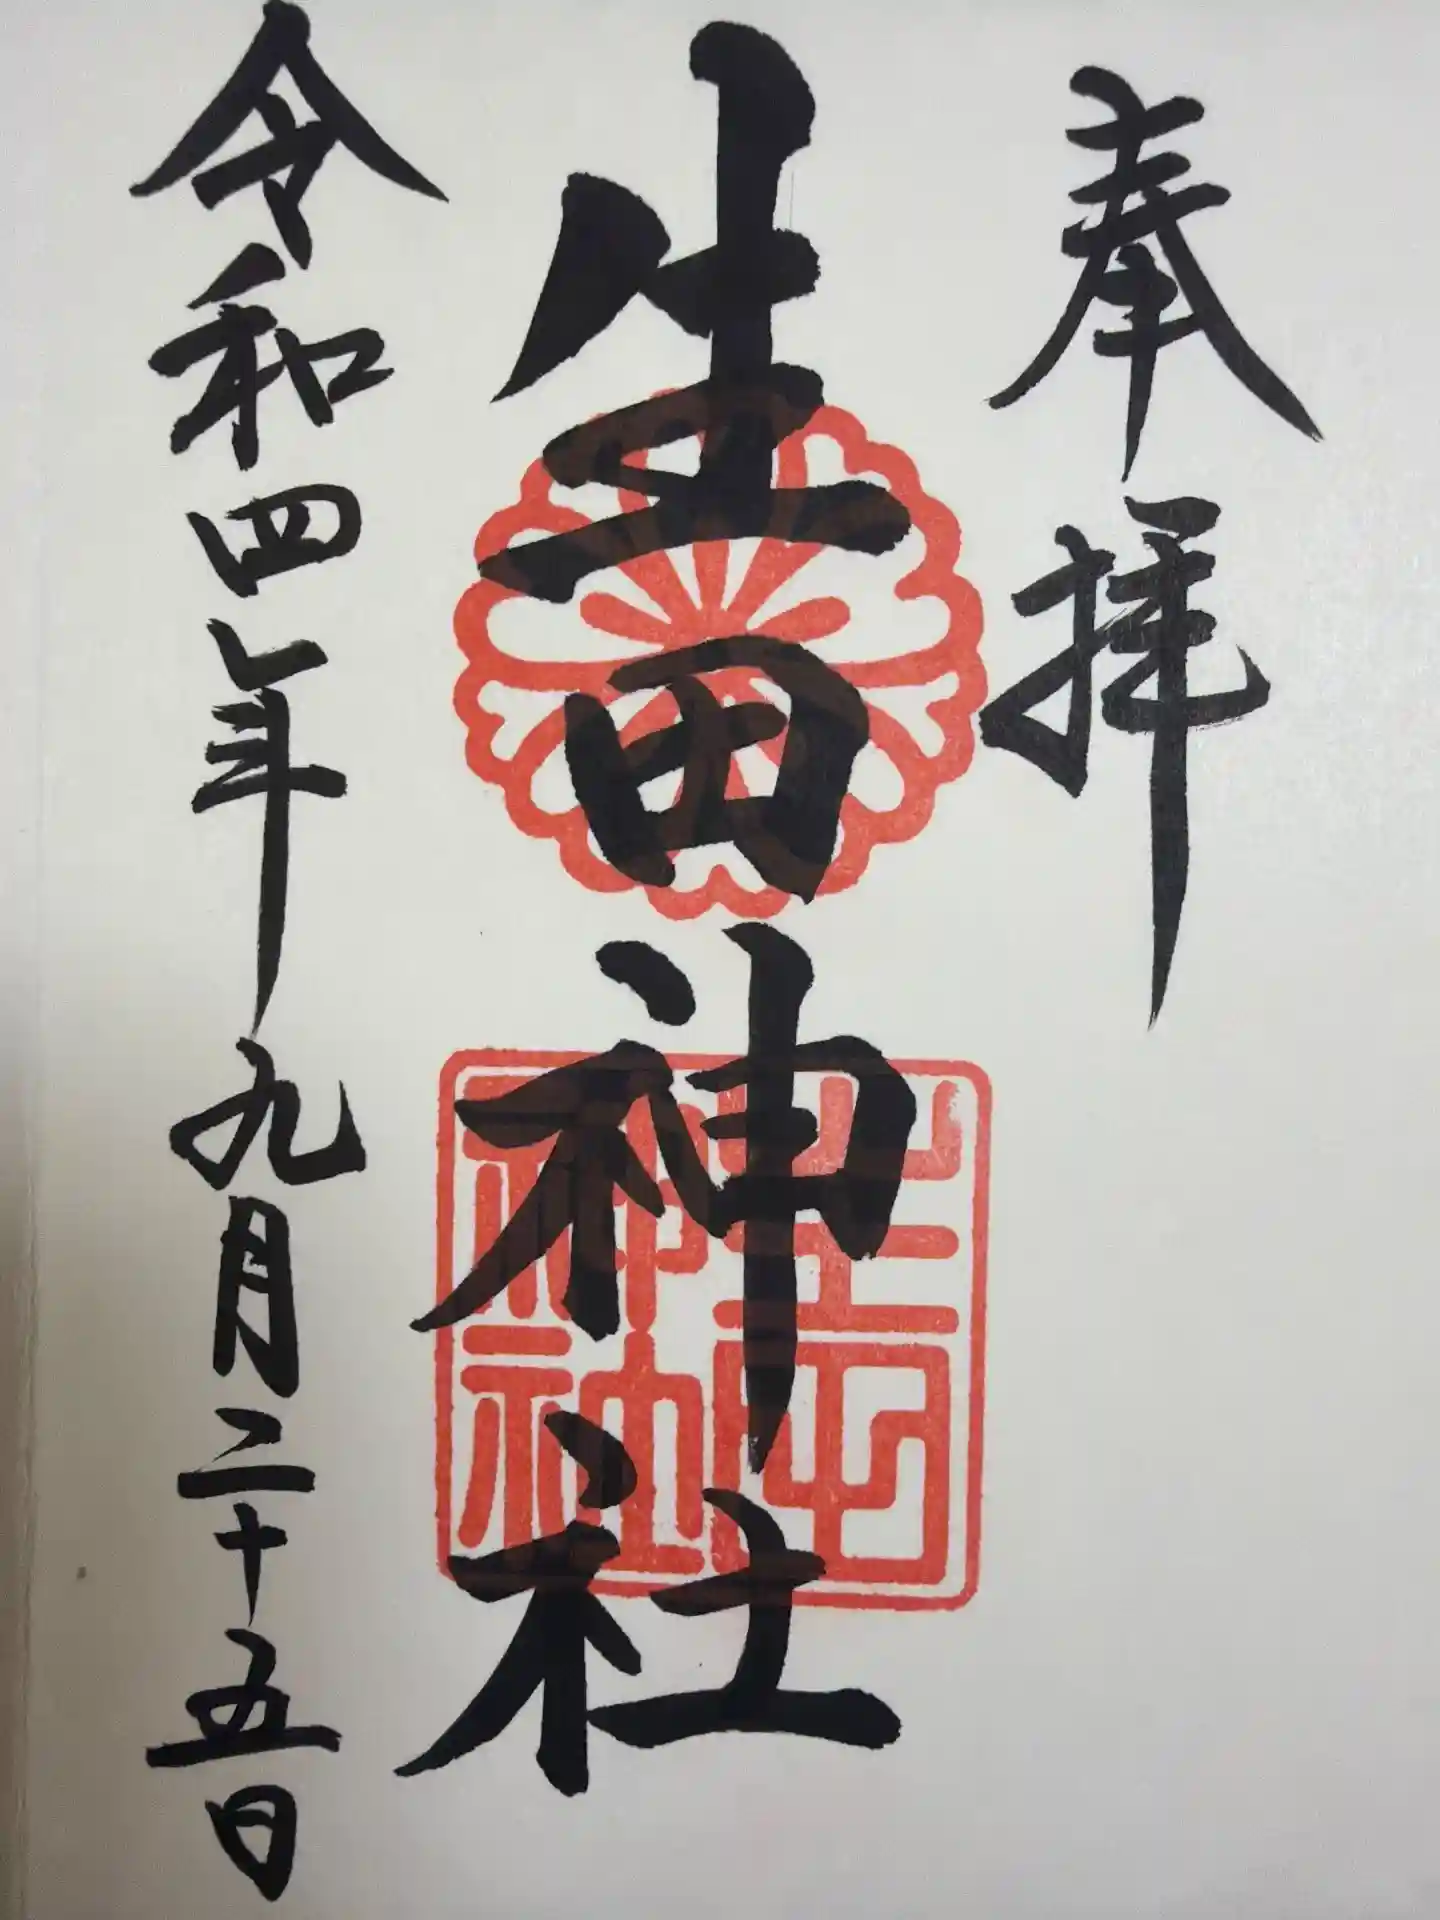 奉拝
生田神社
生田
神社
令和四年九月二十五日